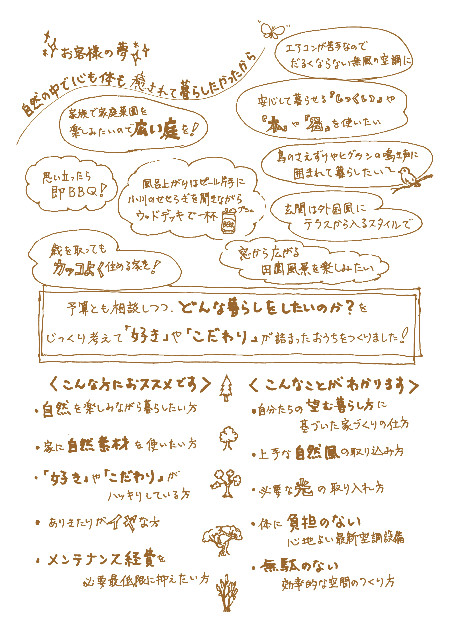 お客様の夢
自然の中で心も体も癒されて暮らしたかったから
エアコンが苦手なので
だるくならない無風の空調に
家族で家庭菜園を
楽しみたいので広い庭を!
安心して暮らせる『しっくい』や
『木』や『 』を使いたい
鳥のさえずりやヒグラシの鳴き声に
囲まれて暮らしたい
思い立ったら
即BBQ!
風呂上がりはビール片手に
小川のせせらぎを聞きながら
ウッドデッキで一杯
玄関は外国風に
テラスから入るスタイルで
歳を取っても
カッコよく住める家を!
窓から広がる
田園風景を楽しみたい
予算とも相談しつつ、どんな暮らしをしたいのか?を
じっくり考えて「好き」や「こだわり」が詰まったおうちをつくりました!
<こんな方におススメです>
・自然を楽しみながら暮らしたい方
・家に自然素材を使いたい方
・「好き」や「こだわり」が
ハッキリしている方
・ありきたりがイヤな方
・メンテナンス経費を
必要最低限に抑えたい方
<こんなことがわかります>
・自分たちの望む暮らし方に
基づいた家づくりの仕方
・上手な自然風の取り込み方
・必要な光の取り入れ方
・体に負担のない
心地よい最新空調設備
・無駄のない
効率的な空間のつくり方